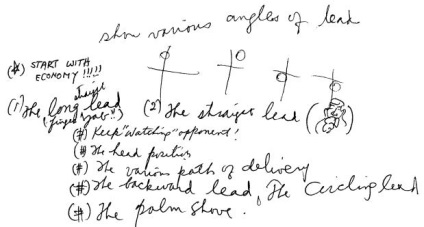 show various angles of lead
(#) START WITH
ECONOMY !!!!!
(1) The long straight lead
(finger jab")
(2) The straight lead (
(#) Keep "watching" opponent!
(#) The head position
(#) The various path of delivery
(#) The backward lead, The Circling lead
(#) The palm shove.